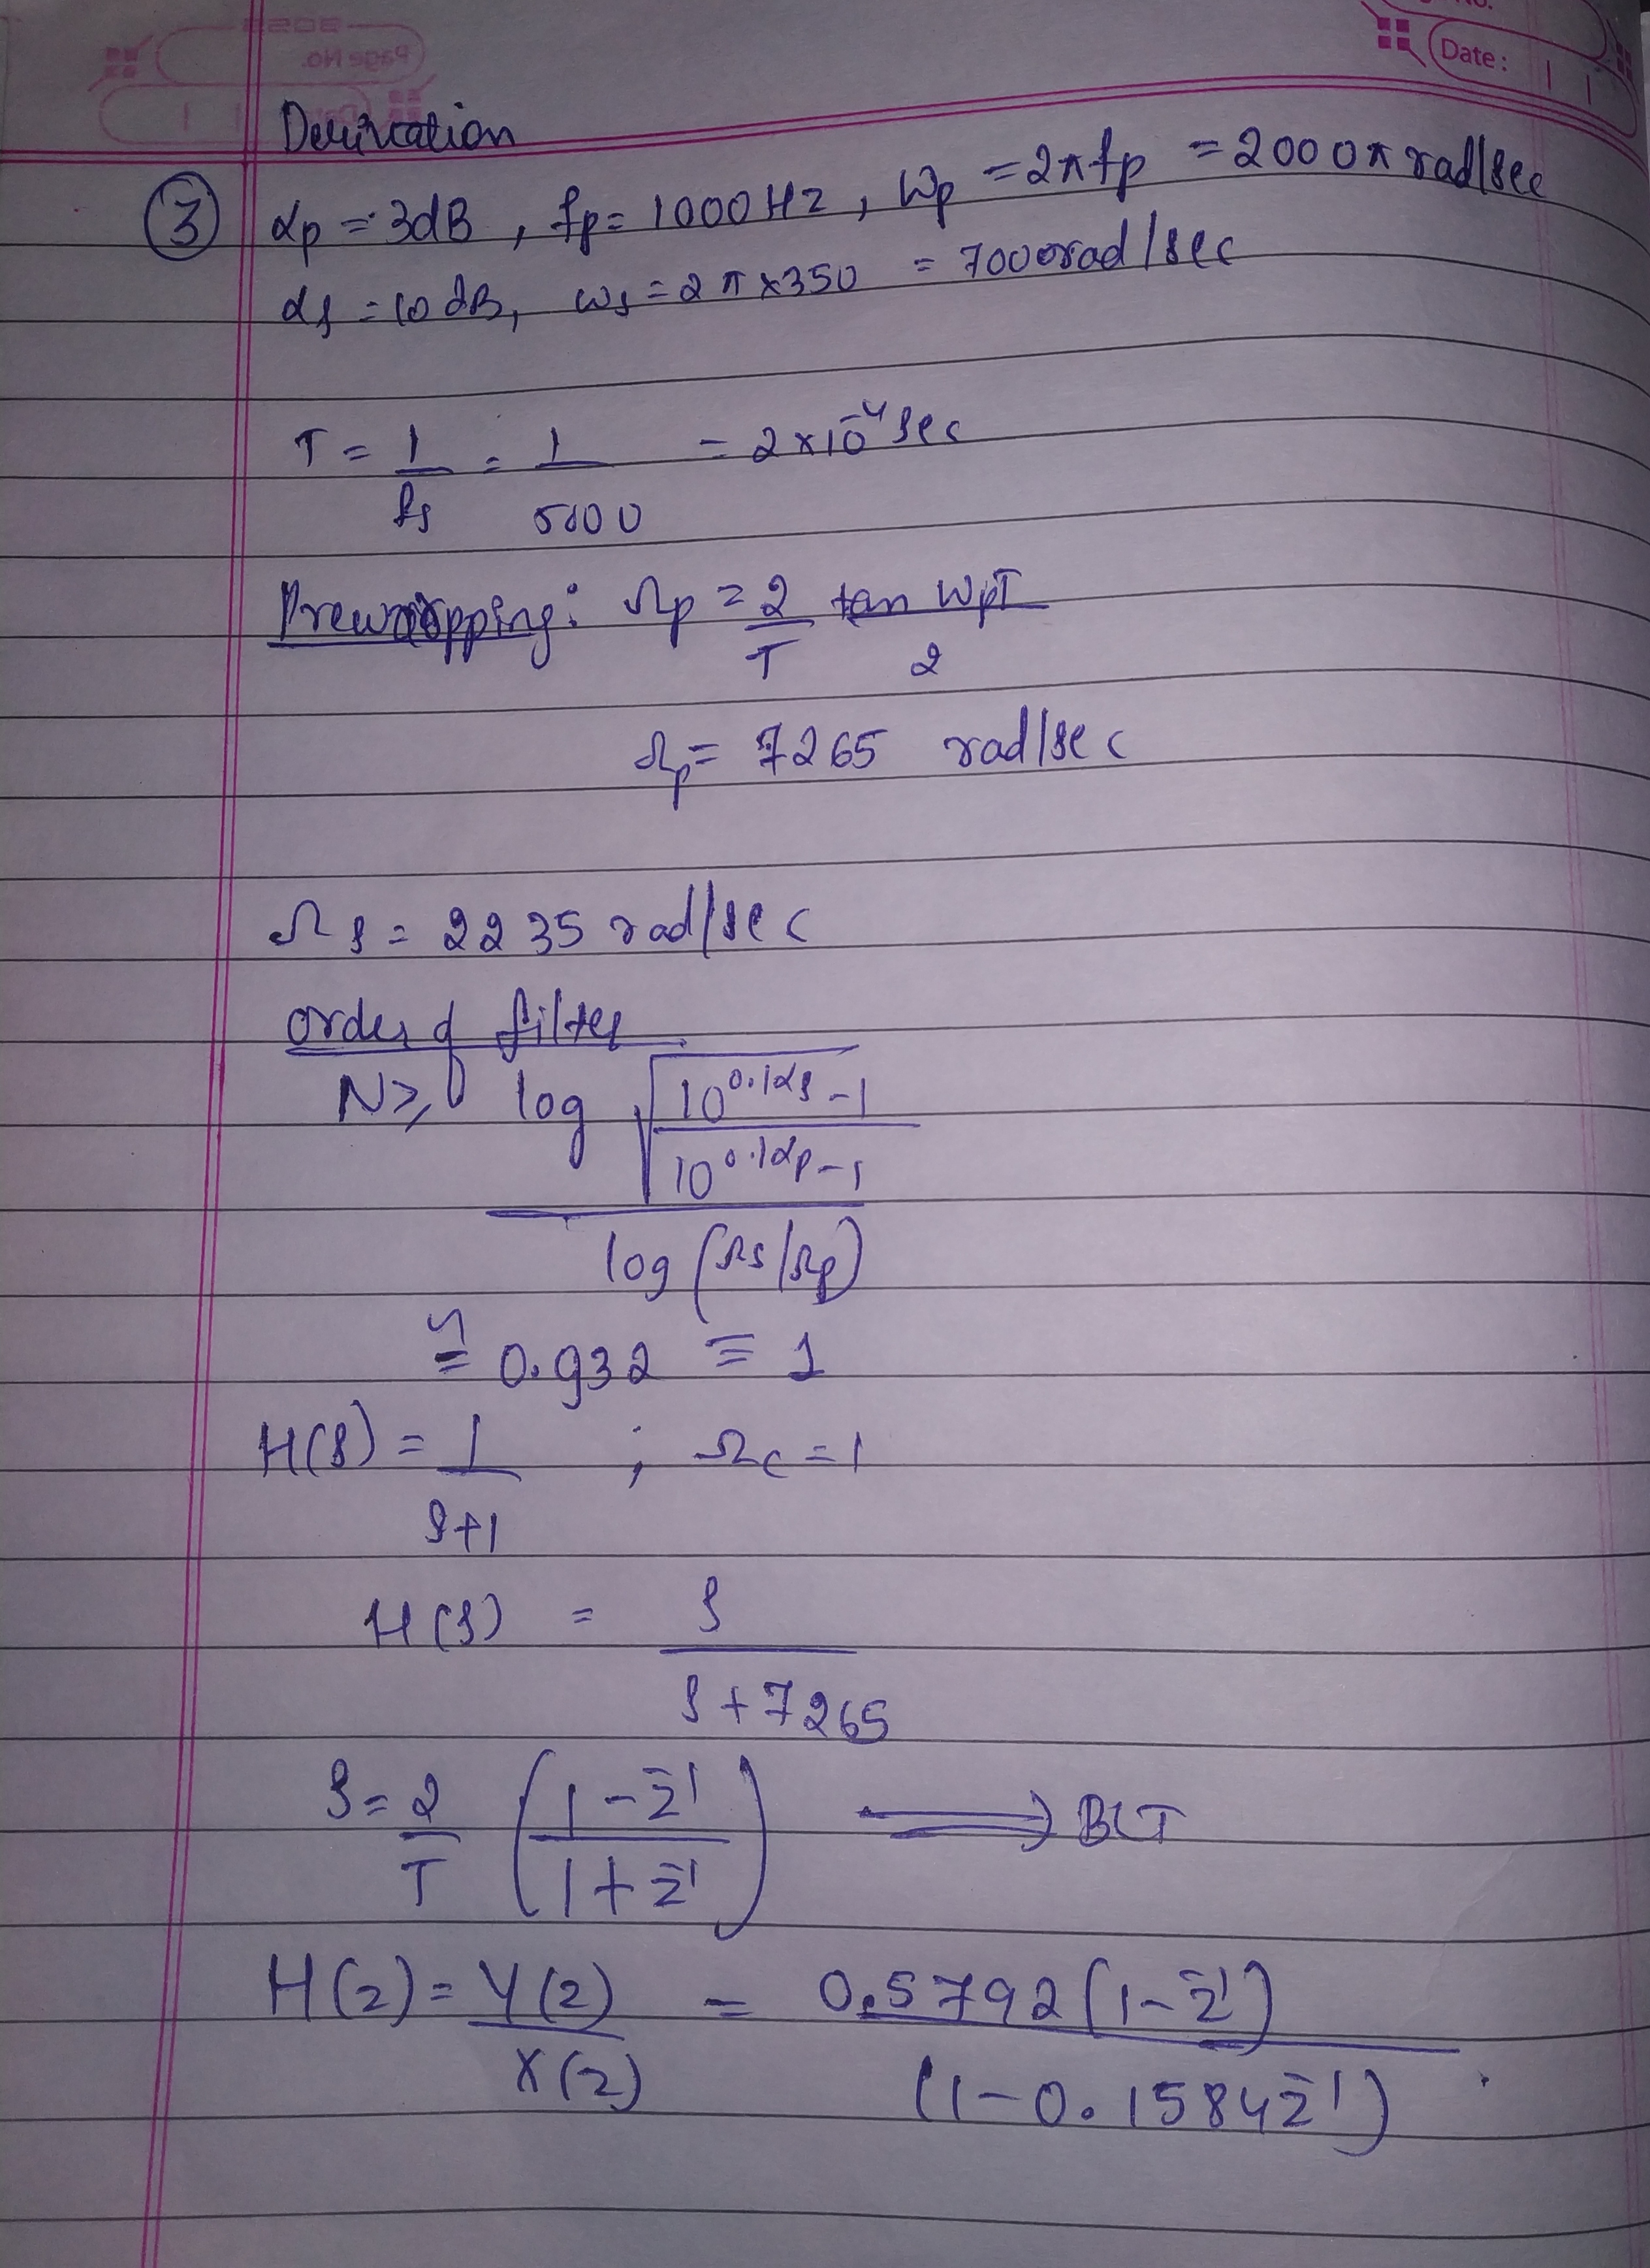 Date:
Page No.
Derivation
③ αp = 3dB, fp = 1000Hz, Wp = 2πfp = 2000π rad/sec
αs = 10dB, ωs = 2π×350 = 7000rad/sec
T = 1/fs = 1/5000 = 2×10⁻⁴ sec
Prewrapping: Ωp = 2/T tan WpT/2
Ωp = 7265 rad/sec
Ωs = 2235 rad/sec
order of filter
N ≥ log √((10^0.1αs - 1)/(10^0.1αp - 1)) / log(Ωs/Ωp)
≅ 0.932 ≡ 1
H(s) = 1/(s+1) ; Ωc = 1
H(s) = s/(s+7265)
s = 2/T ((1-z⁻¹)/(1+z⁻¹)) ⟹ BLT
H(z) = Y(z)/X(z) = 0.5792(1-z⁻¹)/(1-0.1584z⁻¹).